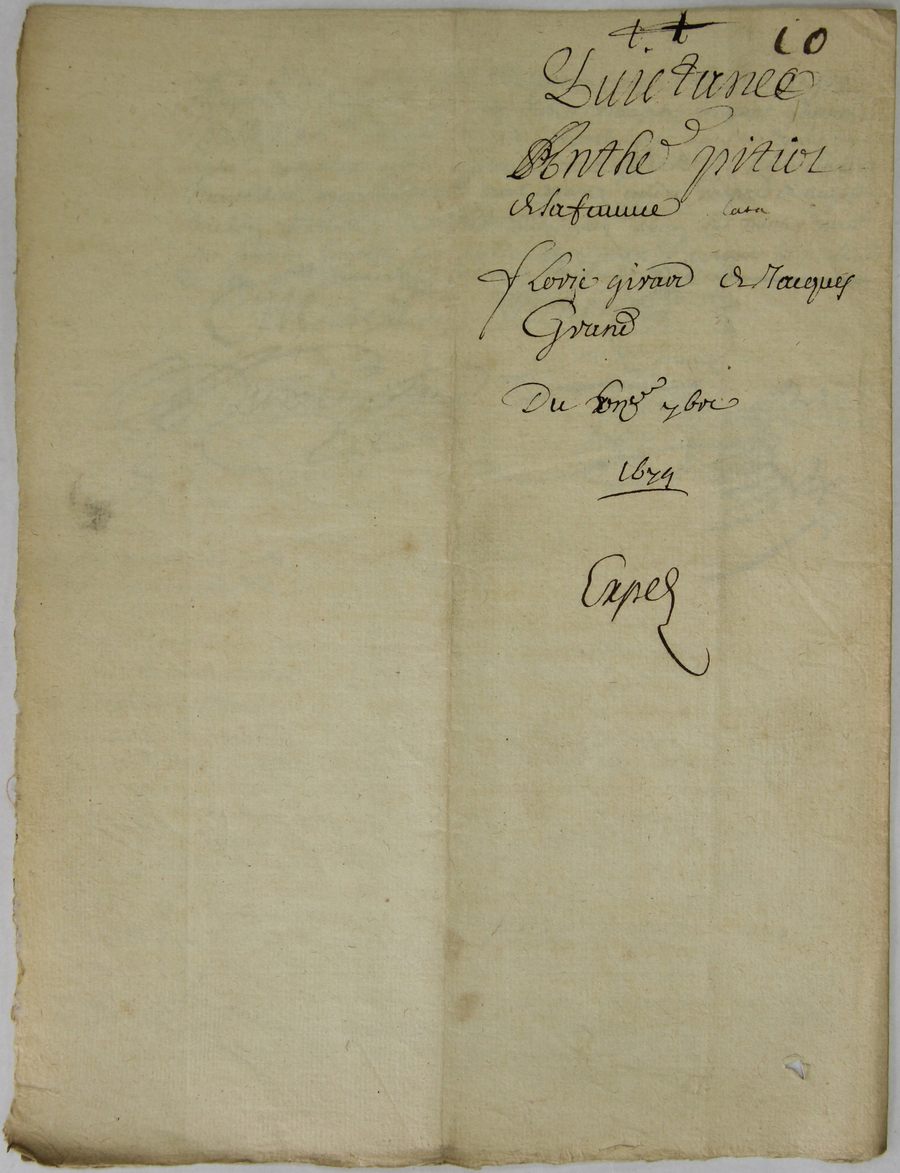 10
Quictance
Anthe pitiot
& sa femme
florie girard & Jacques
Grand
Du 7bre
1679
Expe